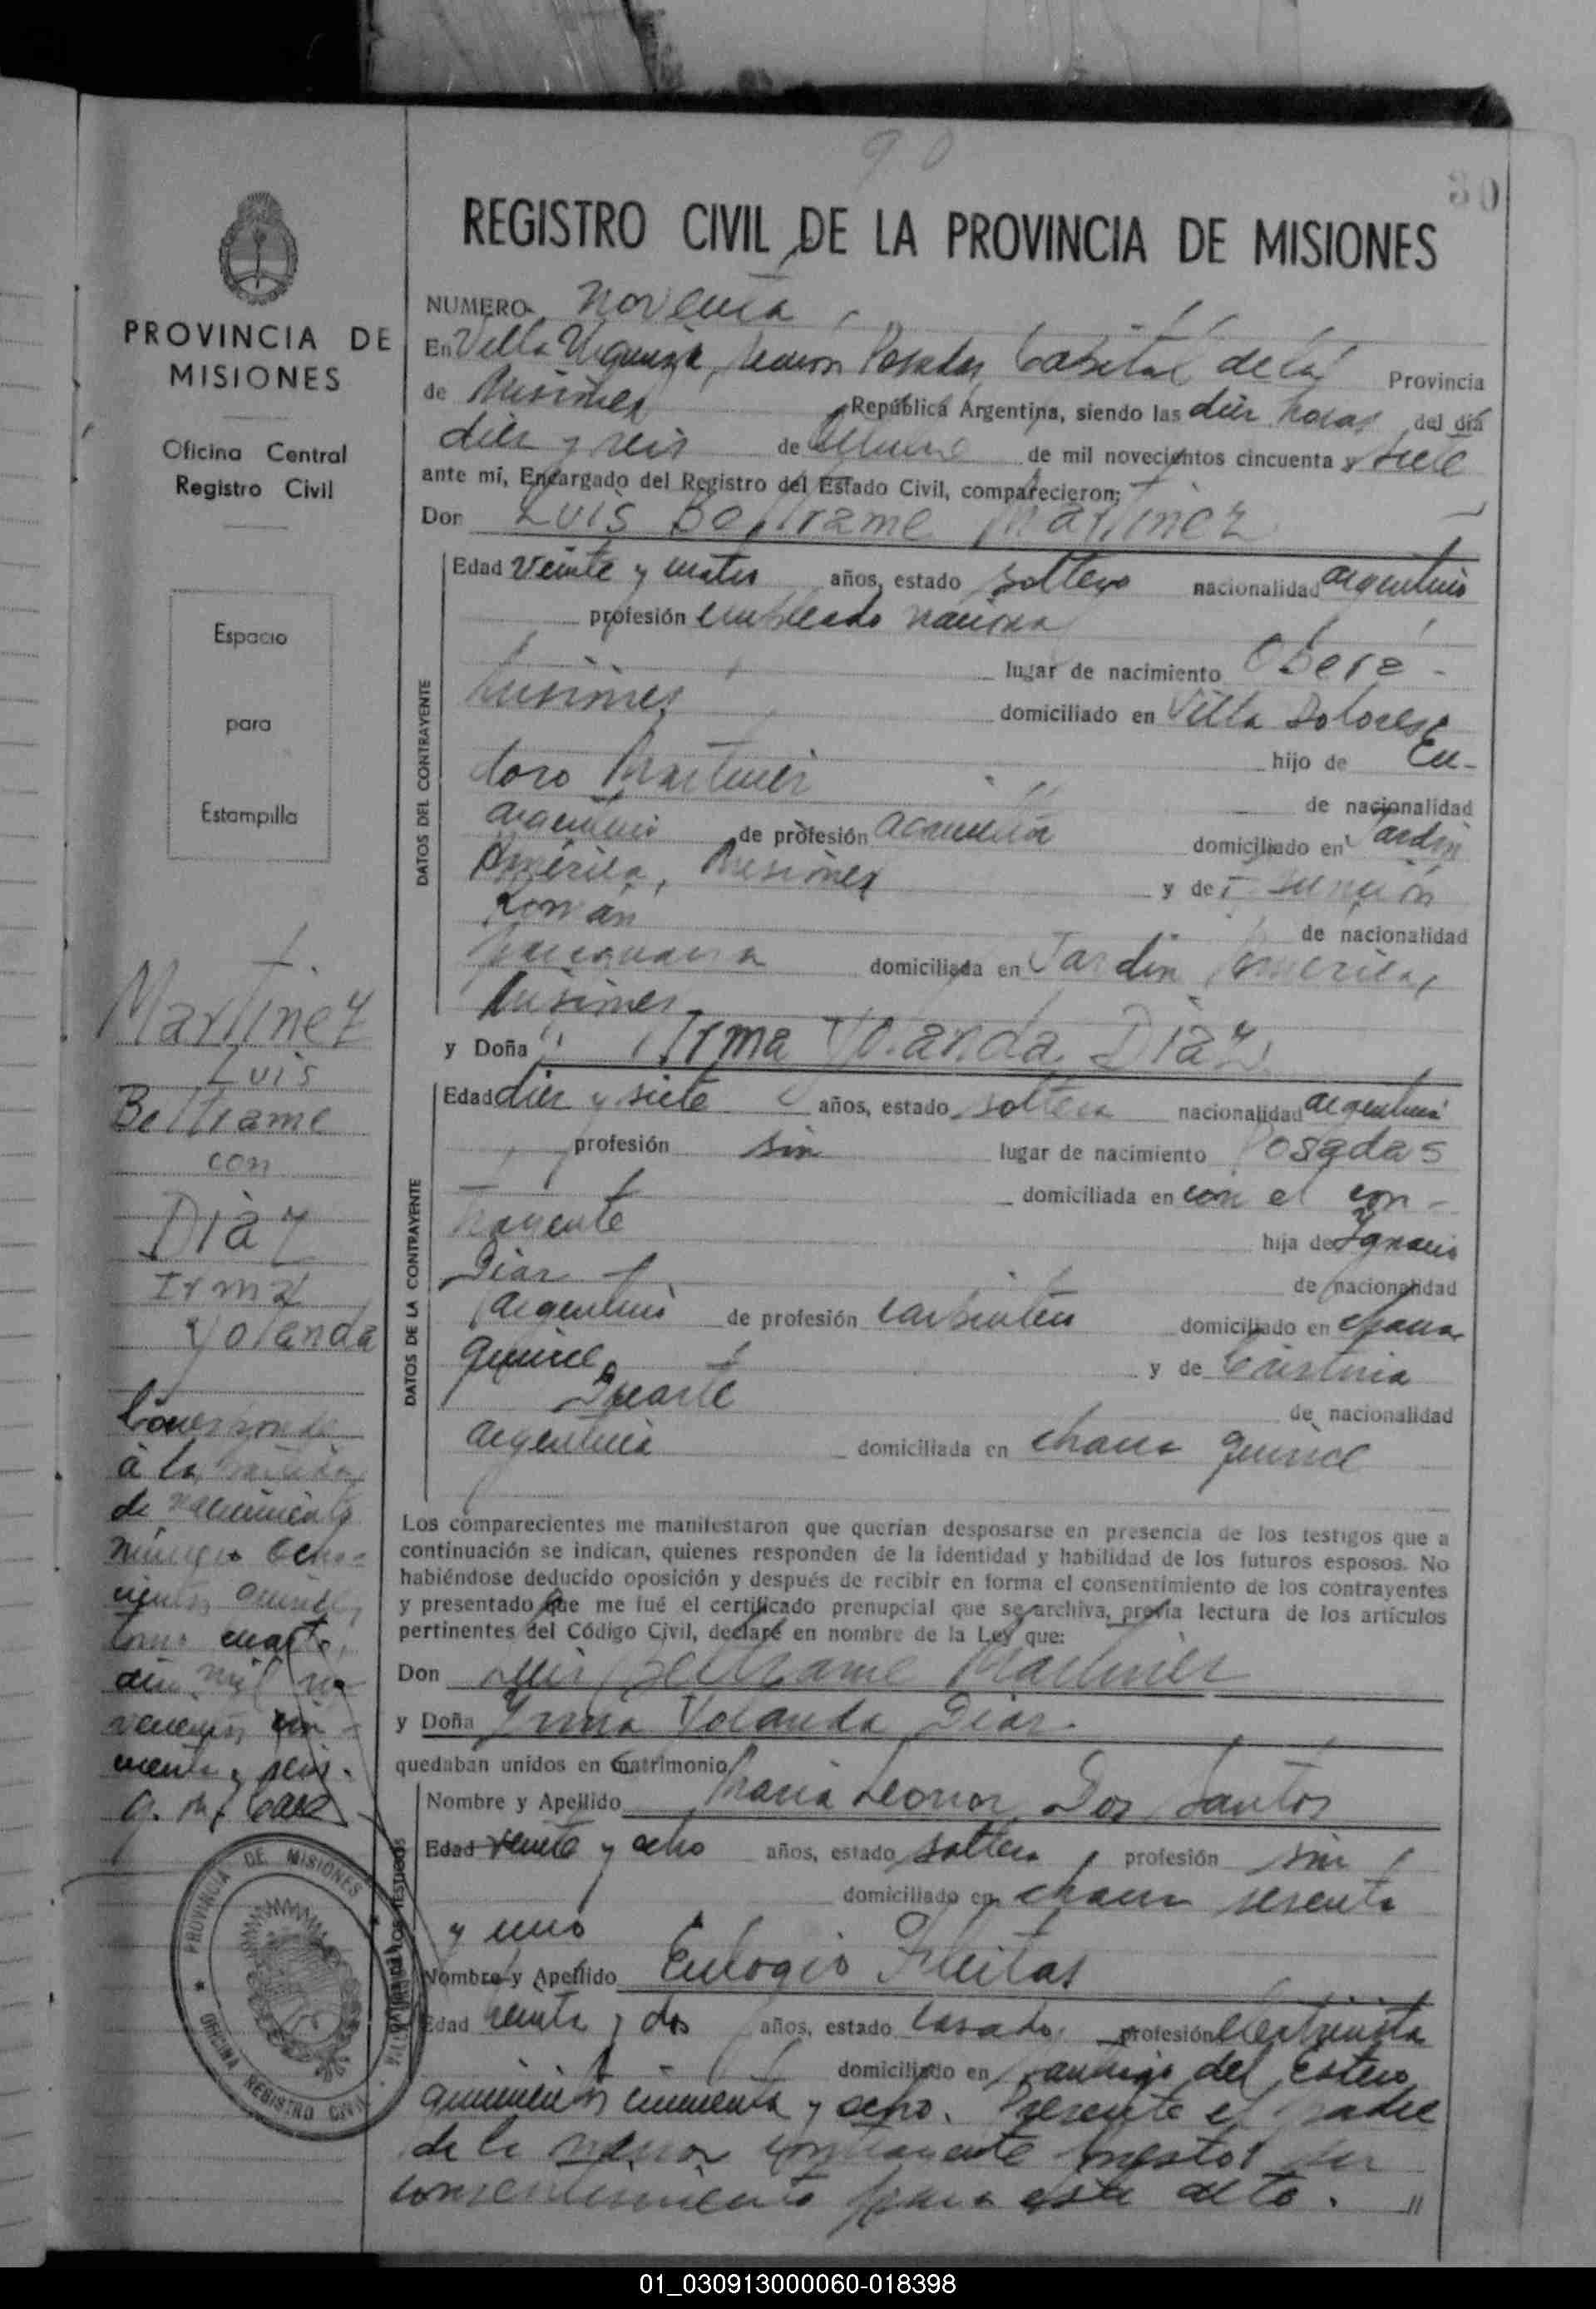 90
60
REGISTRO CIVIL DE LA PROVINCIA DE MISIONES
PROVINCIA DE
MISIONES
Oficina Central
Registro Civil
Espacio
para
Estampilla
Martinez
Luis
Beltrame
con
Diaz
Irma
Yolanda
Corresponde
a la partida
de nacimiento
número ocho-
cientos quince,
tomo cuarto,
año mil no
vecientos cin-
cuenta y seis.
NUMERO noventa
En Villa Urquiza, Posadas, Capital de la Provincia
de Misiones República Argentina, siendo las diez horas del día
diez y seis de de mil novecientos cincuenta y siete
ante mí, Encargado del Registro del Estado Civil, comparecieron:
Don Luis Beltrame Martinez
DATOS DEL CONTRAYENTE
Edad veinte y cuatro años, estado soltero nacionalidad argentino
profesión empleado nacional
lugar de nacimiento Oberá -
Misiones domiciliado en Villa Dolores
hijo de Eu-
doro Martinez de nacionalidad
argentino de profesión agricultor domiciliado en Jardin
América, Misiones y de Asunción
Román de nacionalidad
paraguaya domiciliada en Jardin América,
Misiones
y Doña Irma Yolanda Diaz
DATOS DE LA CONTRAYENTE
Edad diez y siete años, estado soltera nacionalidad argentina
profesión sin lugar de nacimiento Posadas
domiciliada en con el con-
trayente hija de Ignacio
Diaz de nacionalidad
argentino de profesión carpintero domiciliado en chacra
quince y de Cristina
Duarte de nacionalidad
argentina domiciliada en chacra quince
Los comparecientes me manifestaron que querían desposarse en presencia de los testigos que a
continuación se indican, quienes responden de la identidad y habilidad de los futuros esposos. No
habiéndose deducido oposición y después de recibir en forma el consentimiento de los contrayentes
y presentado que me fué el certificado prenupcial que se archiva, previa lectura de los artículos
pertinentes del Código Civil, declaré en nombre de la Ley que:
Don Luis Beltrame Martinez
y Doña Irma Yolanda Diaz
quedaban unidos en matrimonio
Nombre y Apellido Maria Leonor Dos Santos
Edad veinte y ocho años, estado soltera profesión sin
domiciliado en chacra sesenta
y uno
Nombre y Apellido Eulogio Freitas
Edad treinta y dos años, estado casado profesión electricista
domiciliado en Santiago del Estero
quinientos cincuenta y ocho. Presente el padre
de la menor contrayente prestó su
consentimiento para este acto.
PROVINCIA DE MISIONES
OFICINA REGISTRO CIVIL
01_030913000060-018398